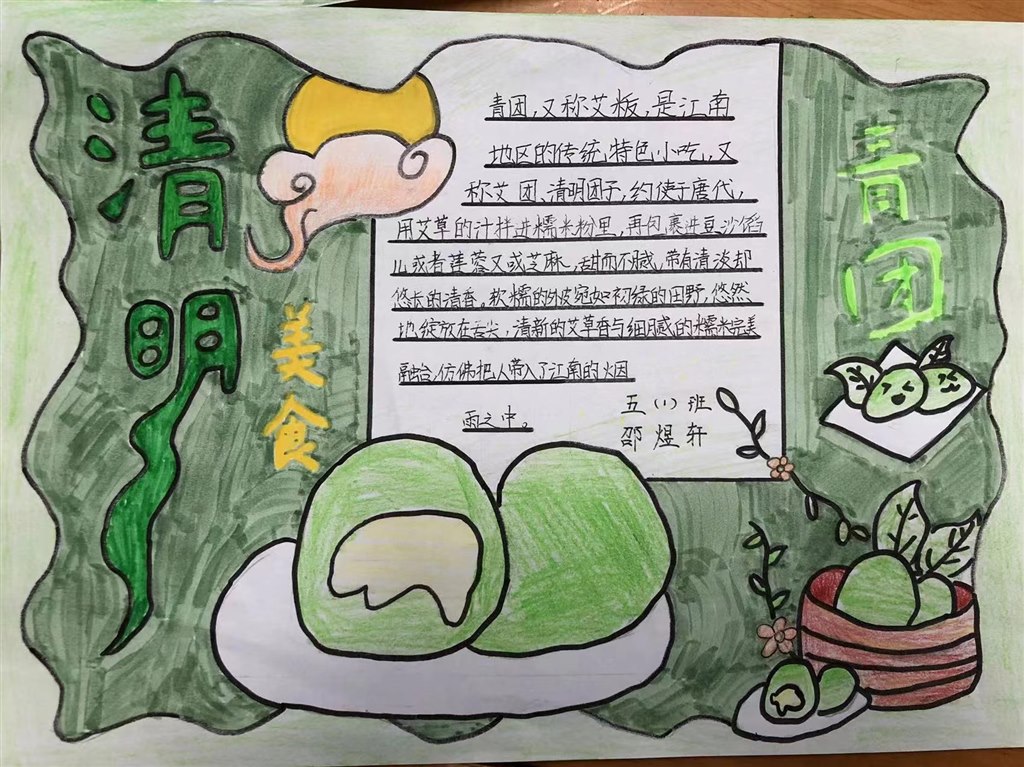 清明
美食
青团
青团,又称艾粄,是江南
地区的传统特色小吃,又
称艾团、清明团子,约使于唐代,
用艾草的汁拌进糯米粉里,再包裹进豆沙馅
儿或者莲蓉又或芝麻,甜而不腻,带有清淡却
悠长的清香。软糯的外皮宛如初绿的田野,悠然
地绽放在舌尖,清新的艾草香与细腻的糯米完美
融合,仿佛把人带入了江南的烟
雨之中。
五(1)班
邵煜轩